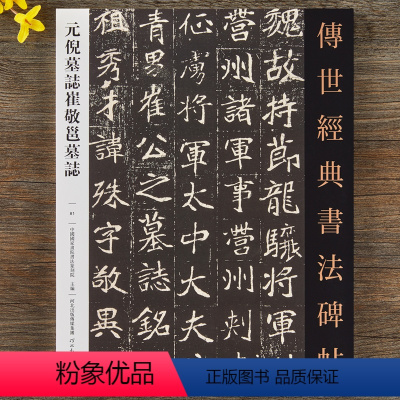 傳世經典書法碑帖
魏故持節龍驤將軍
營州諸軍事營州刺
征虜將軍太中大夫
青男崔公之墓誌銘
祖秀才諱殊字敬異
元倪墓誌崔敬邕墓誌
主編
河北出版傳媒集團
粉象优品